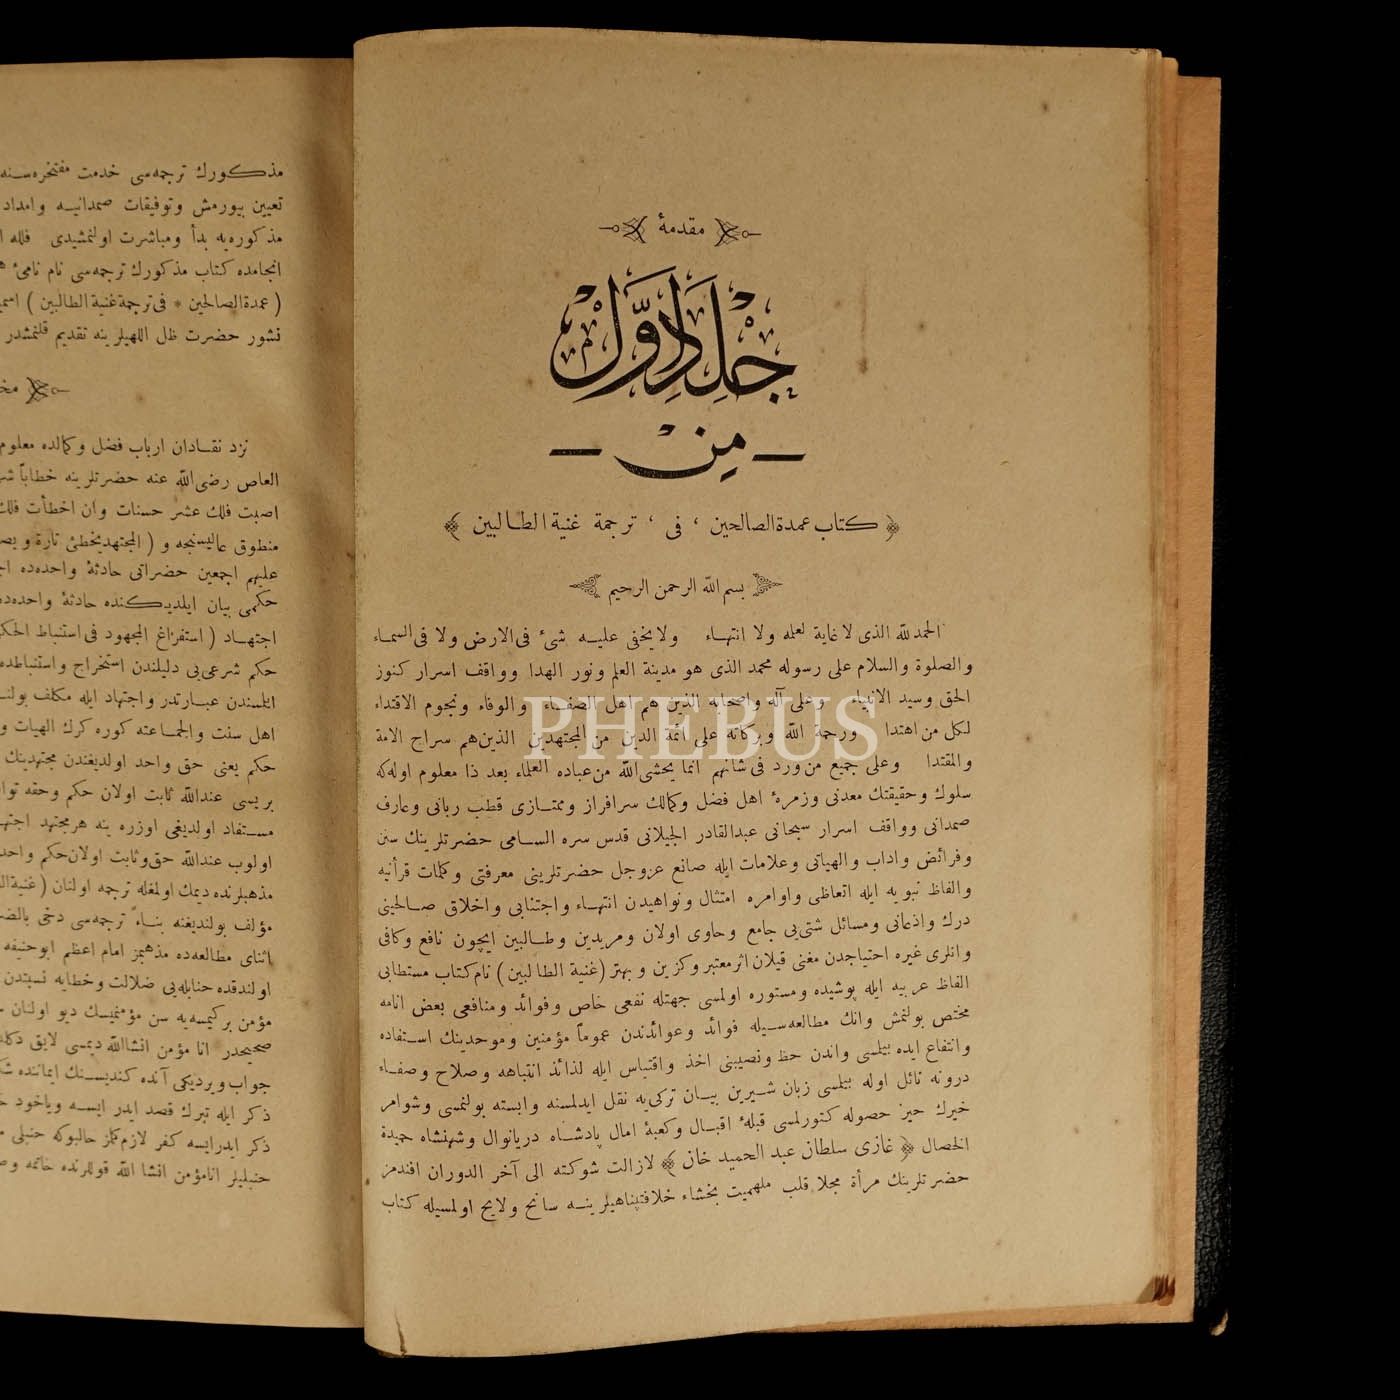 مقدمهٔ
جلد اول
من
﴿ كتاب عمدة الصالحين ، فى ، ترجمة غنية الطالبين ﴾
بسم الله الرحمن الرحيم
الحمد لله الذى لا غاية لعلمه ولا انتهاء ولا يخفى عليه شئ فى الارض ولا فى السماء
والصلوة والسلام على رسوله محمد الذى هو مدينة العلم ونور الهدا وواقف اسرار كنوز
الحق وسيد الانبياء وعلى آله واصحابه الذين هم اهل الصفاء والوفاء ونجوم الاقتداء
لكل من اهتدا ورحمة الله وبركاته على ائمة الدين من المجتهدين الذين هم سراج الامة
والمقتدا وعلى جميع من ورد فى شانهم انما يخشى الله من عباده العلماء بعد ذا معلوم اوله كه
سلوك وحقيقتك معدنى وزمرۀ اهل فضل وكمالك سرافراز وممتازى قطب ربانى وعارف
صمدانى وواقف اسرار سبحانى عبدالقادر الجيلانى قدس سره السامى حضرتلرينك سنن
وفرائض واداب والهياتى وعلامات ايله صانع عزوجل حضرتلرينى معرفتى وكلمات قرأنيه
والفاظ نبويه ايله اتعاظى واوامره امتثال ونواهيدن انتهاء واجتنابى واخلاق صالحينى
درك واذعانى ومسائل شتى‌يى جامع وحاوى اولان ومريدين وطالبين ايچون نافع وكافى
وانلرى غيره احتياجدن مغنى قيلان اثر معتبر وكزين وبهتر (غنية الطالبين) نام كتاب مستطابى
الفاظ عربيه ايله پوشيده ومستوره اولمسى جهتله نفعى خاص وفوائد ومنافعى بعض انامه
مختص بولنمش وانك مطالعه‌سيله فوائد وعوائدندن عموماً مؤمنين وموحدينك استفاده
وانتفاع ايده بيلمسى واندن حظ ونصيبنى اخذ واقتباس ايله لذائذ انتباهه وصلاح وصفاء
درونه نائل اوله بيلمسى زبان شيرين بيان تركى‌يه نقل ايدلمسنه وابسته بولنمسى وشوامر
خيرك حيز حصوله كتورلمسى قبلۀ اقبال وكعبۀ امال پادشاه دريانوال وشهنشاه حميدة
الخصال ﴿ غازى سلطان عبد الحميد خان ﴾ لازالت شوكته الى آخر الدوران افندمز
حضرتلرينك مرأة مجلا قلب ملهميت بخشاء خلافتپناهيلرينه سانح ولايح اولمسيله كتاب
مذكورك ترجمه‌سى خدمت مفتخره‌سنه
تعيين بيورمش وتوفيقات صمدانيه وامداد
مذكوره‌يه بدأ ومباشرت اولنمشيدى فلله
انجامده كتاب مذكورك ترجمه‌سى نام نامئ
( عمدة الصالحين * فى ترجمة غنية الطالبين )
نشور حضرت ظل اللهيلرينه تقديم قلنمشدر
نزد نقادان ارباب فضل وكمالده معلوم
العاص رضى الله عنه حضرتلرينه خطاباً
اصبت فلك عشر حسنات وان اخطأت فلك
منطوق عاليسنجه و ( المجتهد يخطئ تارة و
عليهم اجمعين حضراتى حادثۀ واحده‌ده
حكمى بيان ايلديكنده حادثۀ واحده‌ده
اجتهاد ( استفراغ المجهود فى استنباط
حكم شرعى‌يى دليلندن استخراج واستنباطده
ايلمسندن عبارتدر واجتهاد ايله مكلف
اهل سنت والجماعته كوره كرك الهيات و
حكم يعنى حق واحد اولديغندن مجتهدينك
بريسى عندالله ثابت اولان حكم وحقه
مستفاد اولديغى اوزره ينه هر مجتهد
اولوب عندالله حق وثابت اولان حكم واحد
مذهبلرنده ديمك اولمغله ترجمه اولنان
مؤلف بولنديغنه بناءً ترجمه‌سى دخى
اثناى مطالعه‌ده مذهبمز امام اعظم ابوحنيفه
اولندقده حنابله‌يى ضلالت وخطايه نسبتدن
مؤمن بركيمسه‌يه سن مؤمنميسك ديو اولنان
صحيحدر انا مؤمن انشاالله ديمسى لايق
جواب ويرديكى آنده كنديسنك ايماننده
ذكر ايله تبرك قصد ايدر ايسه وياخود
ذكر ايدرايسه كفر لازم كلمز حالبوكه حنبلى
حنبليلر انا مؤمن انشا الله قوللرنده خاتمه
PHEBUS